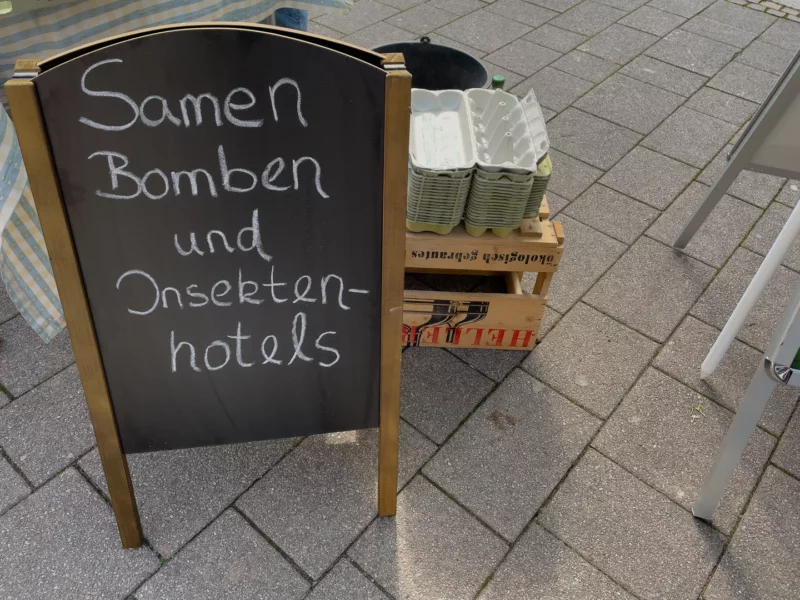 Samen
Bomben
und
Insekten-
hotels
ökologisch gebrautes
HELLE